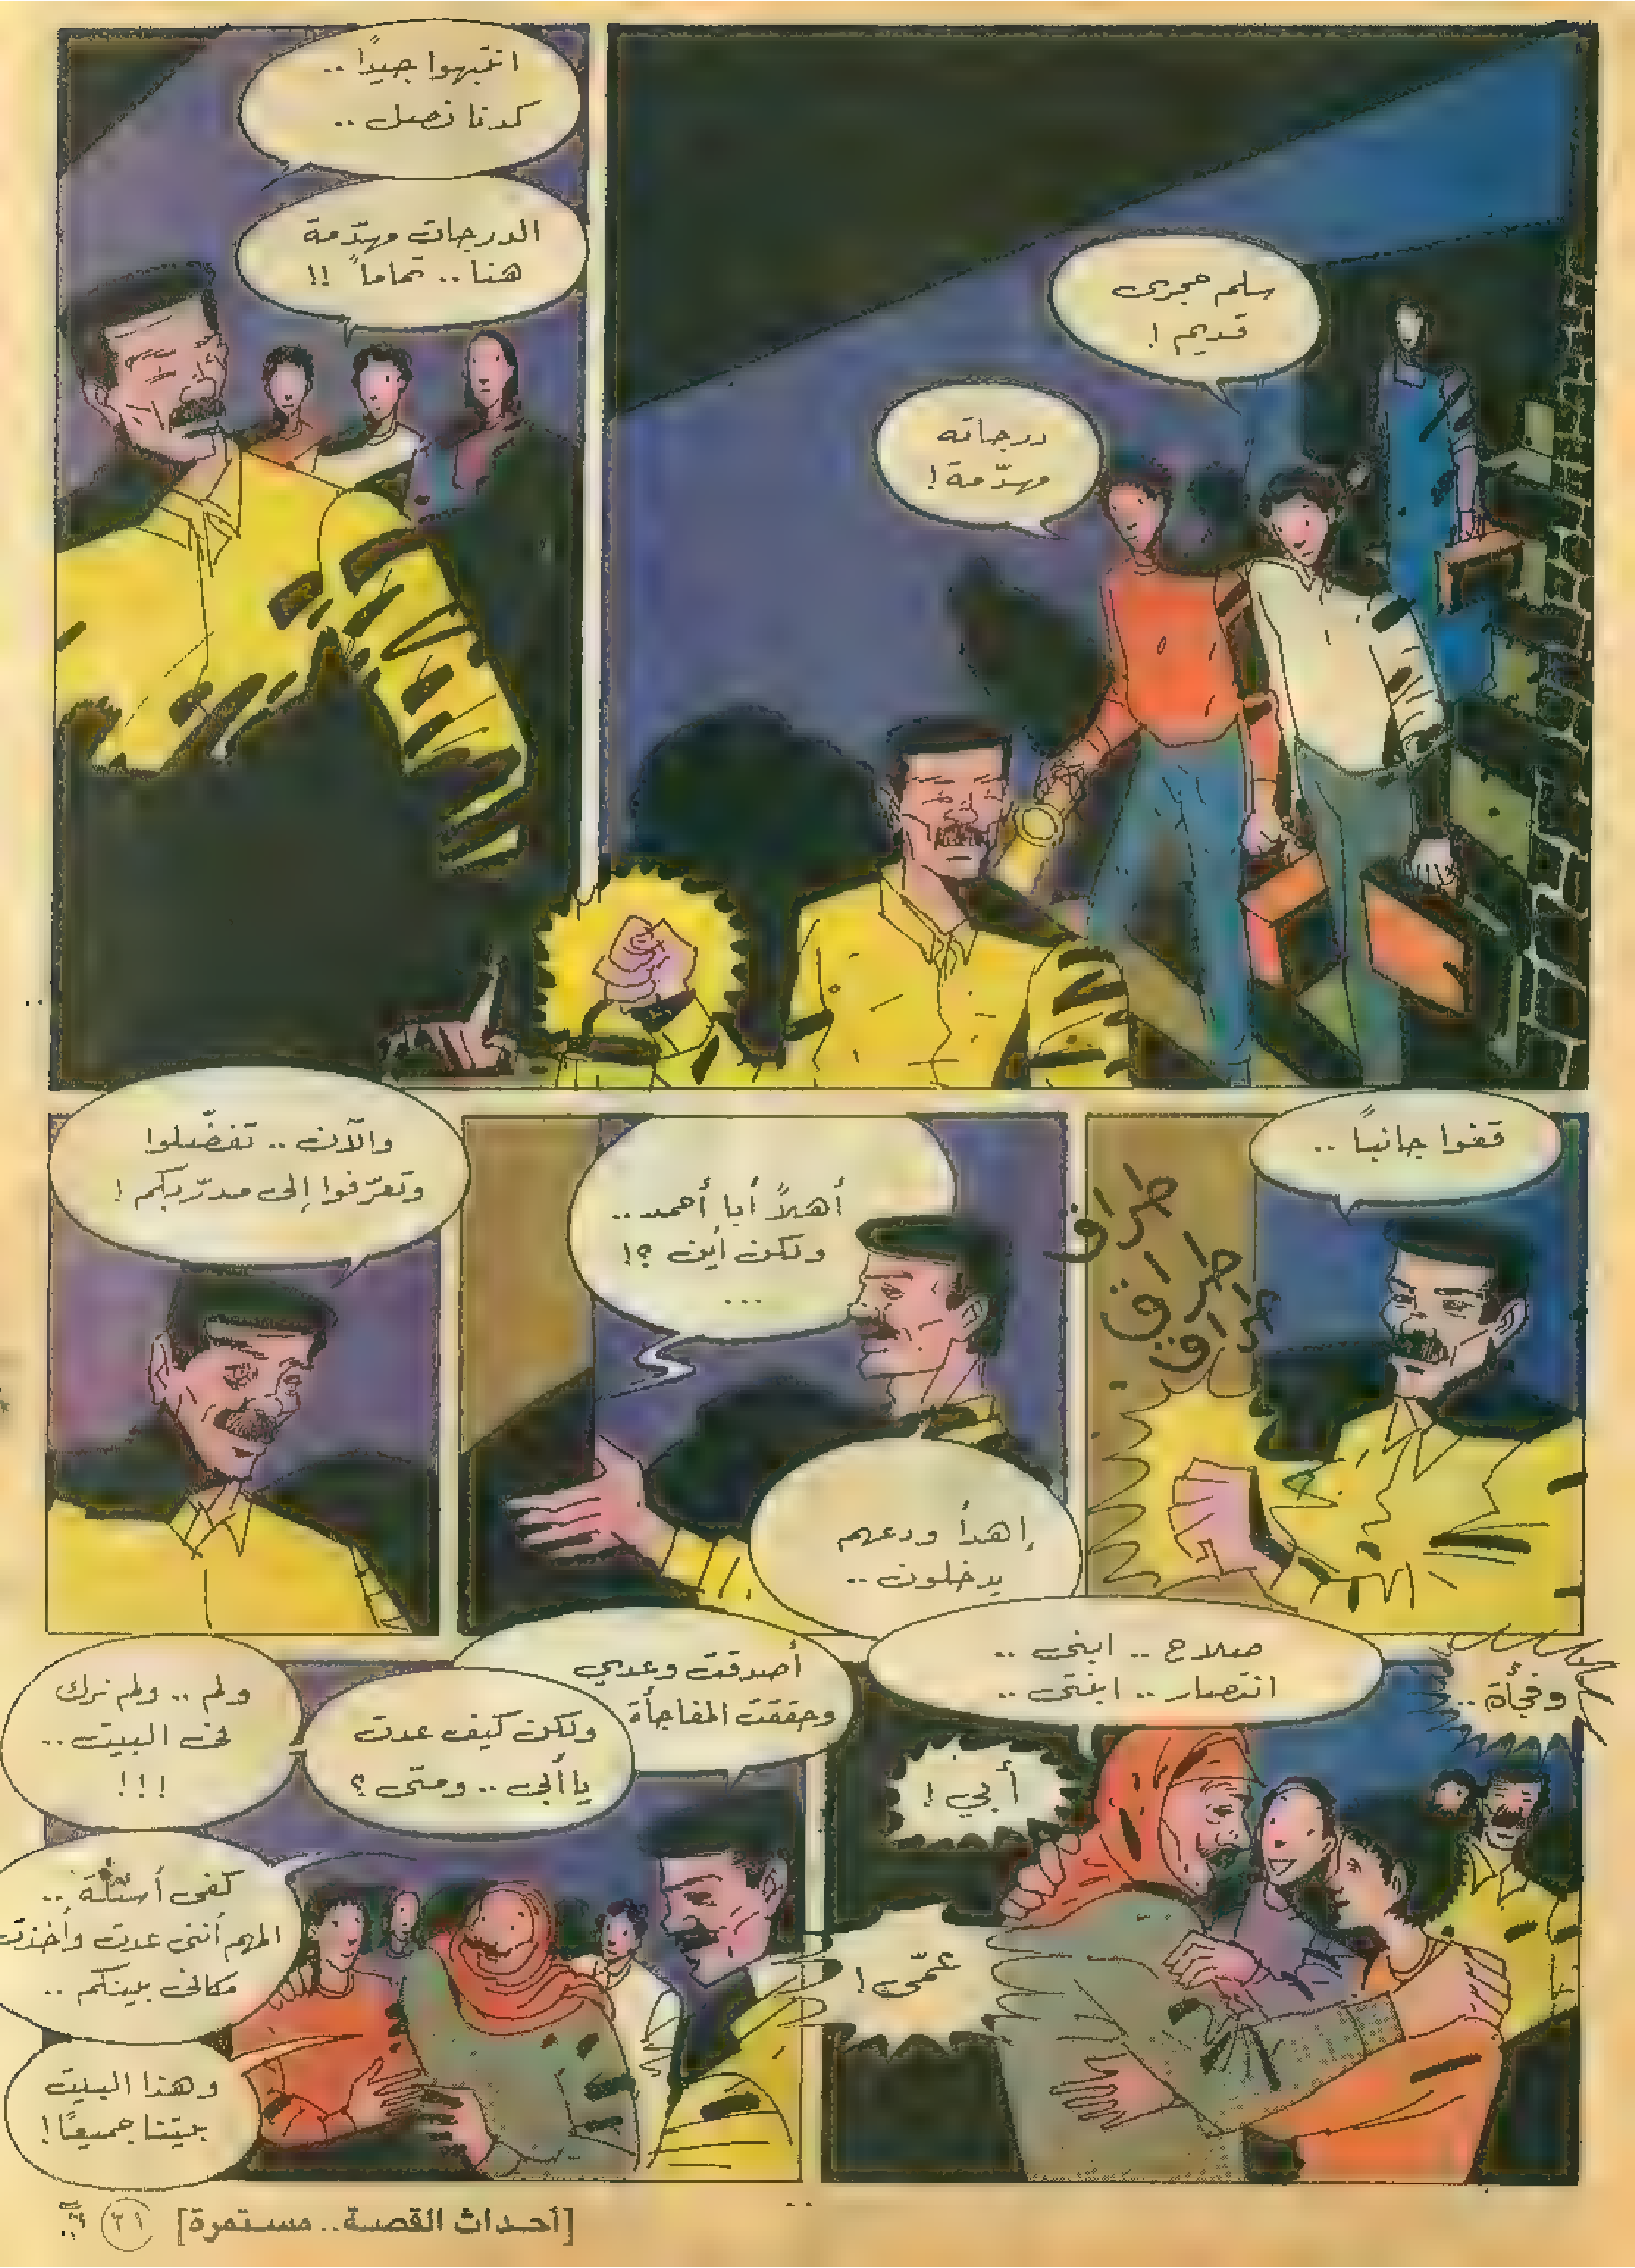 سلم حجرى
قديم !
درجاته
مهدّمة !
انتبهوا جيدًا ..
كدنا نصل ..
الدرجات مهدّمة
هنا .. تماماً !!
قفوا جانباً ..
طراق
طراق
طراق
أهلاً أبا أحمد ..
ولكن أين ؟!
...
إهدأ ودعهم
يدخلون ..
والآن .. تفضّلوا
وتعرّفوا إلى مدرّبكم !
وفجأة ..
صلاح .. ابنى ..
انتصار .. ابنتى ..
أبي !
عمّى !
أصدقت وعدي
وحققت المفاجأة
ولكن كيف عدت
يا أبى .. ومتى ؟
ولم .. ولم نرك
فى البيت ..
!!!
كفى أسئلة ..
المهم أننى عدت وأخذت
مكانى بينكم ..
وهذا البيت
بيتنا جميعًا !
[أحداث القصة.. مستمرة] ٣١